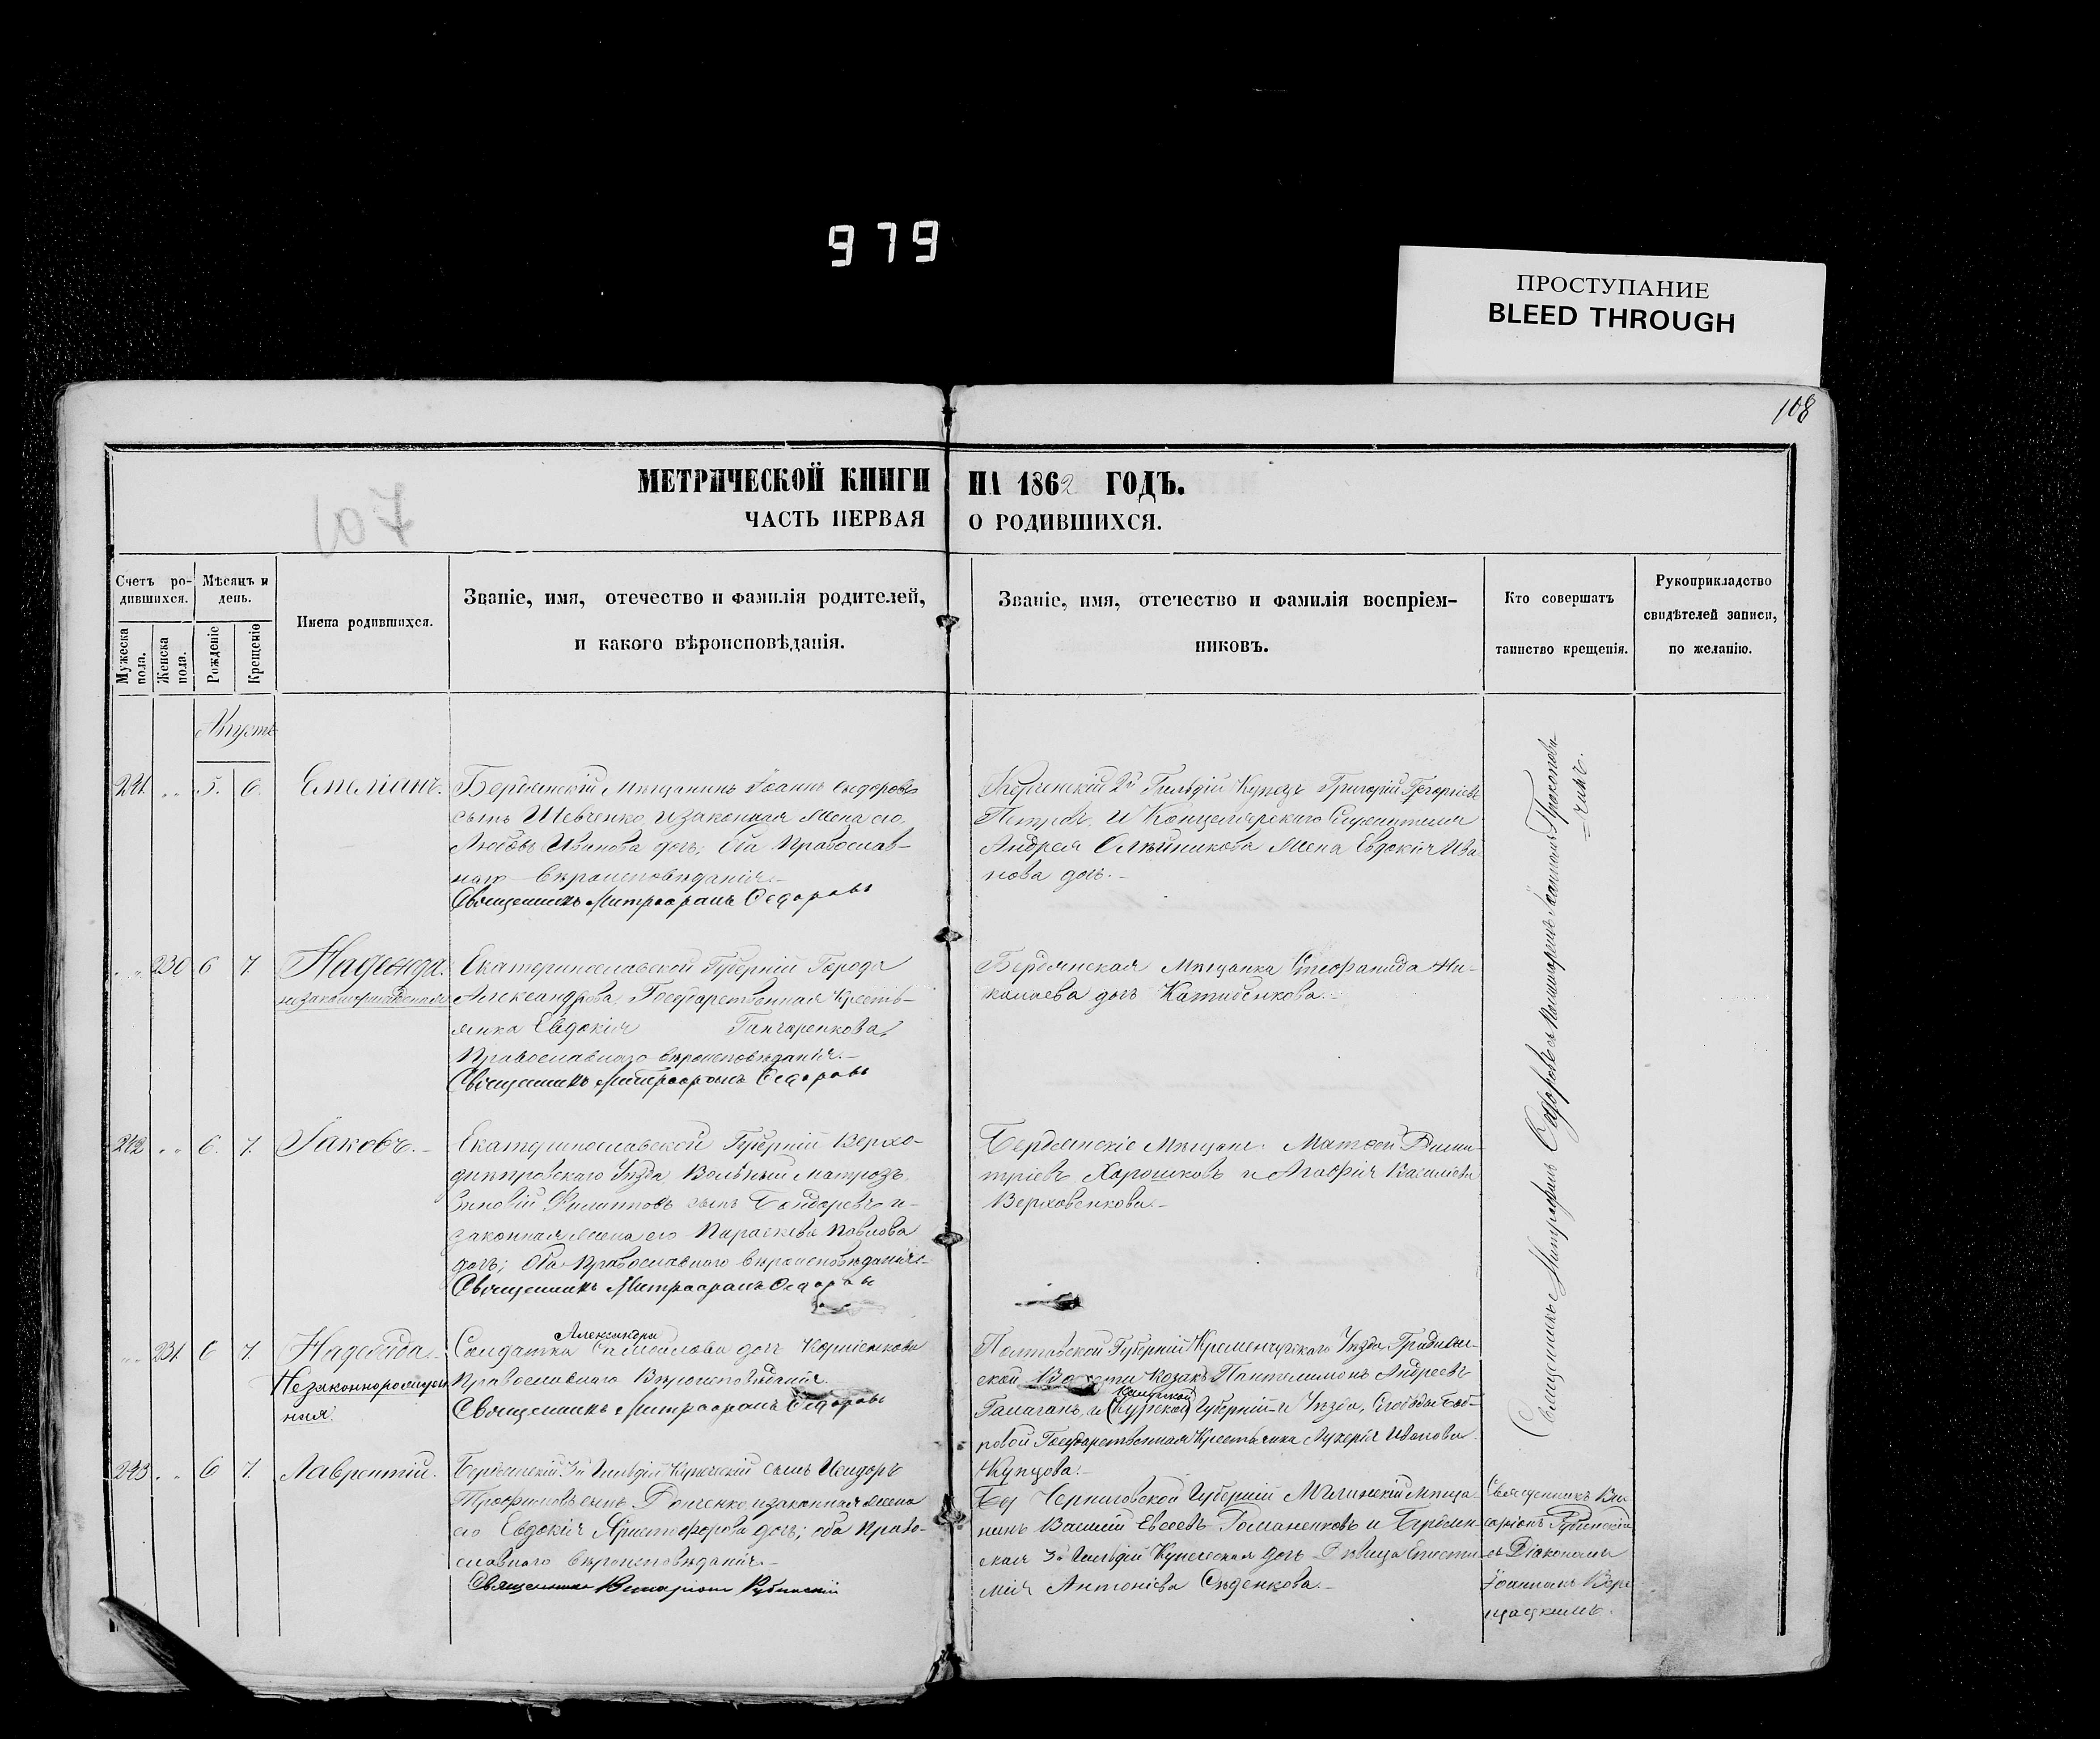 979
ПРОСТУПАНИЕ
BLEED THROUGH
108
107
МЕТРИЧЕСКОЙ КНИГИ НА 1862 ГОДЪ.
ЧАСТЬ ПЕРВАЯ О РОДИВШИХСЯ.
Счетъ ро-
дившихся.
Мужеска пола.
Женска пола.
Мѣсяцъ и
день.
Рожденіе
Крещеніе
Имена родившихся.
Званіе, имя, отечество и фамилія родителей,
и какого вѣроисповѣданія.
Званіе, имя, отечество и фамилія воспріем-
никовъ.
Кто совершалъ
таинство крещенія.
Рукоприкладство
свидѣтелей записи,
по желанію.
Августъ
241. " " 5. 6. Емеліанъ.
Бердянскій Мѣщанинъ Іоаннъ Ѳедоровъ
сынъ Шевченко, и законная жена его
Любовь Иванова дочь; Оба Православ-
наго вѣроисповѣданія.-
Священникъ Митрофанъ Ѳедоровъ
2й Гильдіи Купецъ Григорій Григорьевъ
Петровъ, и Канцелярскаго Служителя
Андрея Олѣйникова жена Евдокія Ива
нова дочь.-
" " 230 6 7. Надежда.
незаконнорожденная
Екатеринославской Губерніи Города
Александрова, Государственная Кресть-
янка Евдокія Ганчаренкова,
Православнаго вѣроисповѣданія.-
Священникъ Митрофанъ Ѳедоровъ
Бердянская Мѣщанка Стефанида Ни-
колаева дочь
242 " " 6. 7. Іаковъ.-
Екатеринославской Губерніи Верхо-
днѣпровскаго Уѣзда Вольный Матрозъ
Зиновій Филипповъ сынъ Бондаревъ и-
законная жена его Параскева Павлова
дочь; Оба Православнаго вѣроисповѣданія.-
Священникъ Митрофанъ Ѳедоровъ
Бердянскіе Мѣщане: Матѳей Дими-
тріевъ Харошковъ и Агафія Василіева
Верховенкова.-
" " 231. 6 7. Надежда.
Незаконнорожден
ная.
Александра
Солдатка Самойлова дочь Корніенкова
Православнаго Вѣроисповѣданія.
Священникъ Митрофанъ Ѳедоровъ
Полтавской Губерніи Кременчугскаго Уѣзда,
ской Козакъ Пантелимонъ Андреевъ
Галаганъ, и (Курской) Губерніи и Уѣзда, Слободы Боб-
ровой Государственная Крестьянка Лукерія Иванова
Купцова.-
243. " " 6 7. Лаврентій.
Бердянскій 3й Гильдіи Купеческій сынъ Исидоръ
Трофимовъ сынъ и законная жена
его Евдокія Христофорова дочь; оба Право-
славнаго вѣроисповѣданія.-
Священникъ Виссаріонъ Рубинскій
Черниговской Губерніи Мглинскій Мѣща-
нинъ Василій Евсеевъ Романенковъ и Бердян-
ская 3й Гильдіи Купеческая дочь Дѣвица Еписти-
мія Антоніева
Священникъ Митрофанъ Ѳедоровъ съ Пономаремъ Іоанномъ Прокопови-
=чемъ.
Священникъ Вис
саріонъ Рубинскій
съ Діакономъ
Іоанномъ Вер